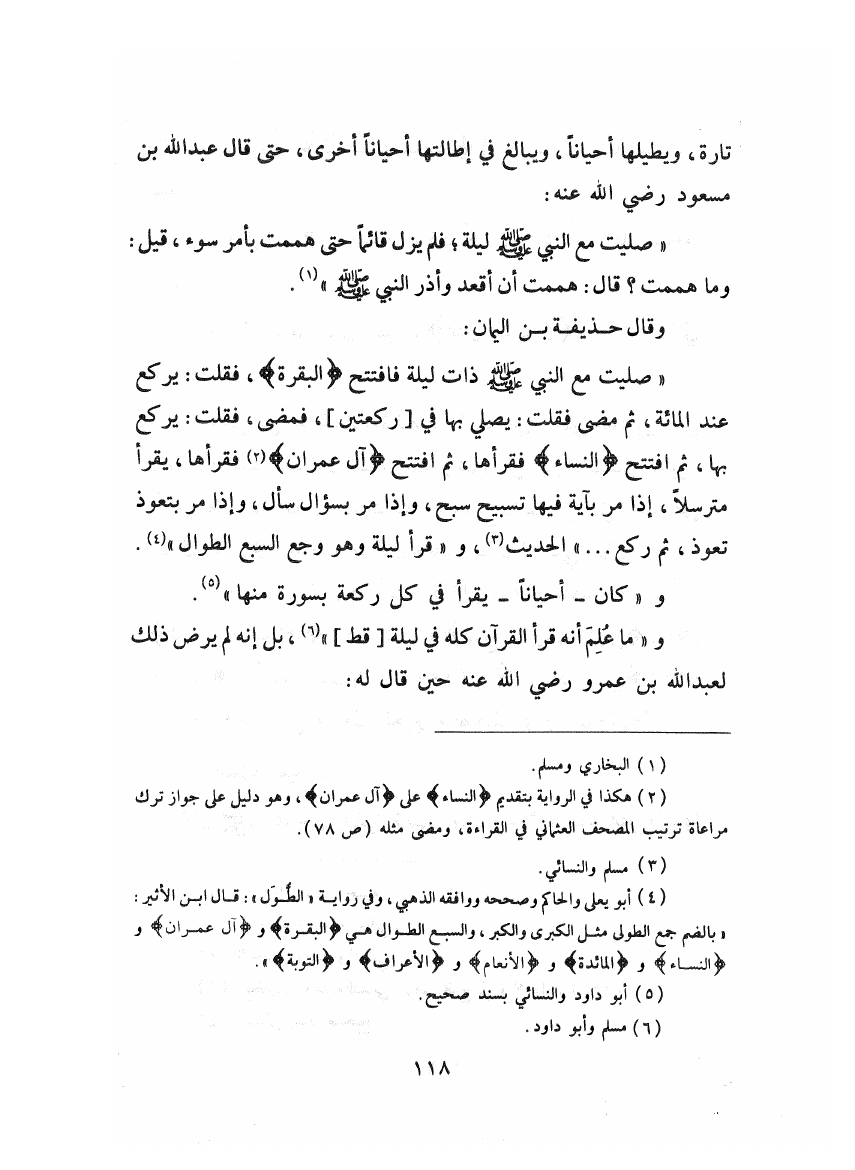 تارة ، ويطيلها أحياناً ، ويبالغ في إطالتها أحياناً أخرى ، حتى قال عبدالله بن
مسعود رضي الله عنه :
« صليت مع النبي ﷺ ليلة ؛ فلم يزل قائماً حتى هممت بأمر سوء ، قيل :
وما هممت ؟ قال : هممت أن أقعد وأذر النبي ﷺ »(١) .
وقال حـذيفـة بـن اليمان :
« صليت مع النبي ﷺ ذات ليلة فافتتح ﴿البقرة﴾ ، فقلت : يركع
عند المائة ، ثم مضى فقلت : يصلي بها في [ ركعتين ] ، فمضى ، فقلت : يركع
بها ، ثم افتتح ﴿النساء﴾ فقرأها ، ثم افتتح ﴿آل عمران﴾(٢) فقرأها ، يقرأ
مترسلاً ، إذا مر بآية فيها تسبيح سبح ، وإذا مر بسؤال سأل ، وإذا مر بتعوذ
تعوذ ، ثم ركع ... » الحديث(٣) ، و « قرأ ليلة وهو وجع السبع الطوال »(٤) .
و « كان - أحياناً - يقرأ في كل ركعة بسورة منها »(٥) .
و « ما عُلِمَ أنه قرأ القرآن كله في ليلة [ قط ] »(٦) ، بل إنه لم يرض ذلك
لعبدالله بن عمرو رضي الله عنه حين قال له :
(١) البخاري ومسلم .
(٢) هكذا في الرواية بتقديم ﴿النساء﴾ على ﴿آل عمران﴾ ، وهو دليل على جواز ترك
مراعاة ترتيب المصحف العثماني في القراءة ، ومضى مثله (ص ٧٨) .
(٣) مسلم والنسائي .
(٤) أبو يعلى والحاكم وصححه ووافقه الذهبي ، وفي روايـة « الطُّـوَل » : قـال ابـن الأثير :
« بالضم جمع الطولى مثـل الكبرى والكبر ، والسبـع الطـوال هـي ﴿البقـرة﴾ و ﴿آل عمـران﴾ و
﴿النسـاء﴾ و ﴿المائدة﴾ و ﴿الأنعام﴾ و ﴿الأعراف﴾ و ﴿التوبة﴾ » .
(٥) أبو داود والنسائي بسند صحيح .
(٦) مسلم وأبو داود .
١١٨